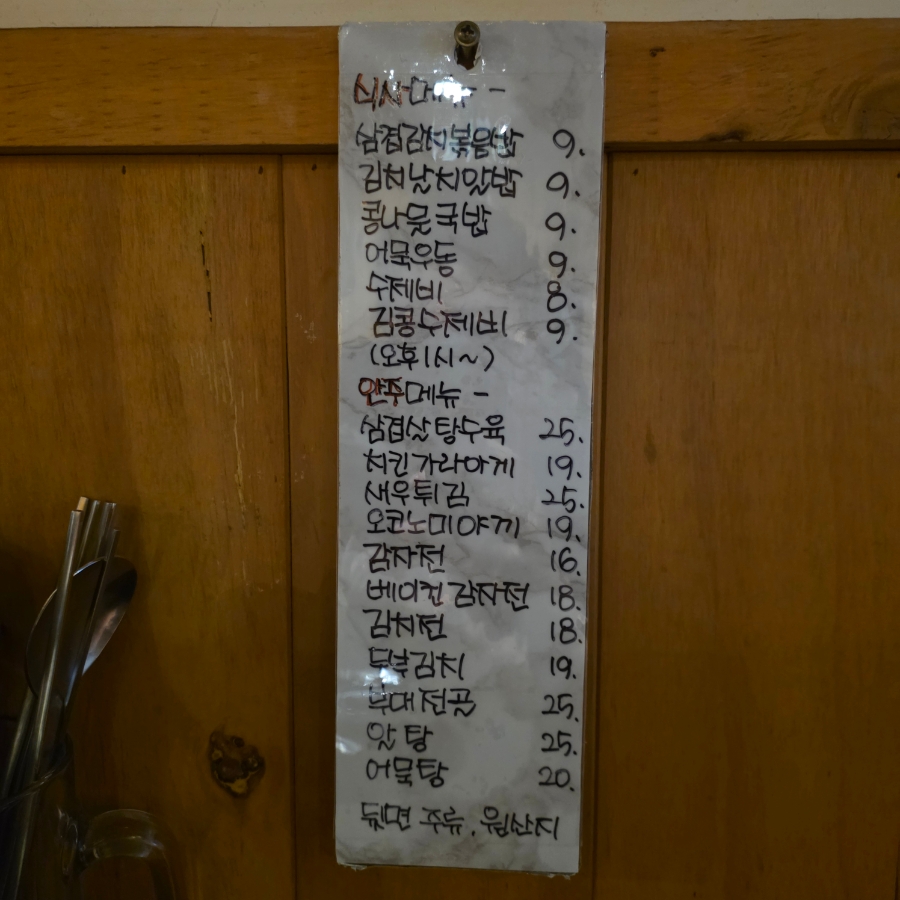 식사메뉴 -
삼겹김치볶음밥 9.
김치날치알밥 9.
콩나물국밥 9.
어묵우동 9.
수제비 8.
김콩수제비 9.
(오후1시~)
안주메뉴 -
삼겹살탕수육 25.
치킨가라아게 19.
새우튀김 25.
오코노미야끼 19.
감자전 16.
베이컨감자전 18.
김치전 18.
두부김치 19.
부대전골 25.
알탕 25.
어묵탕 20.
뒷면 주류, 원산지